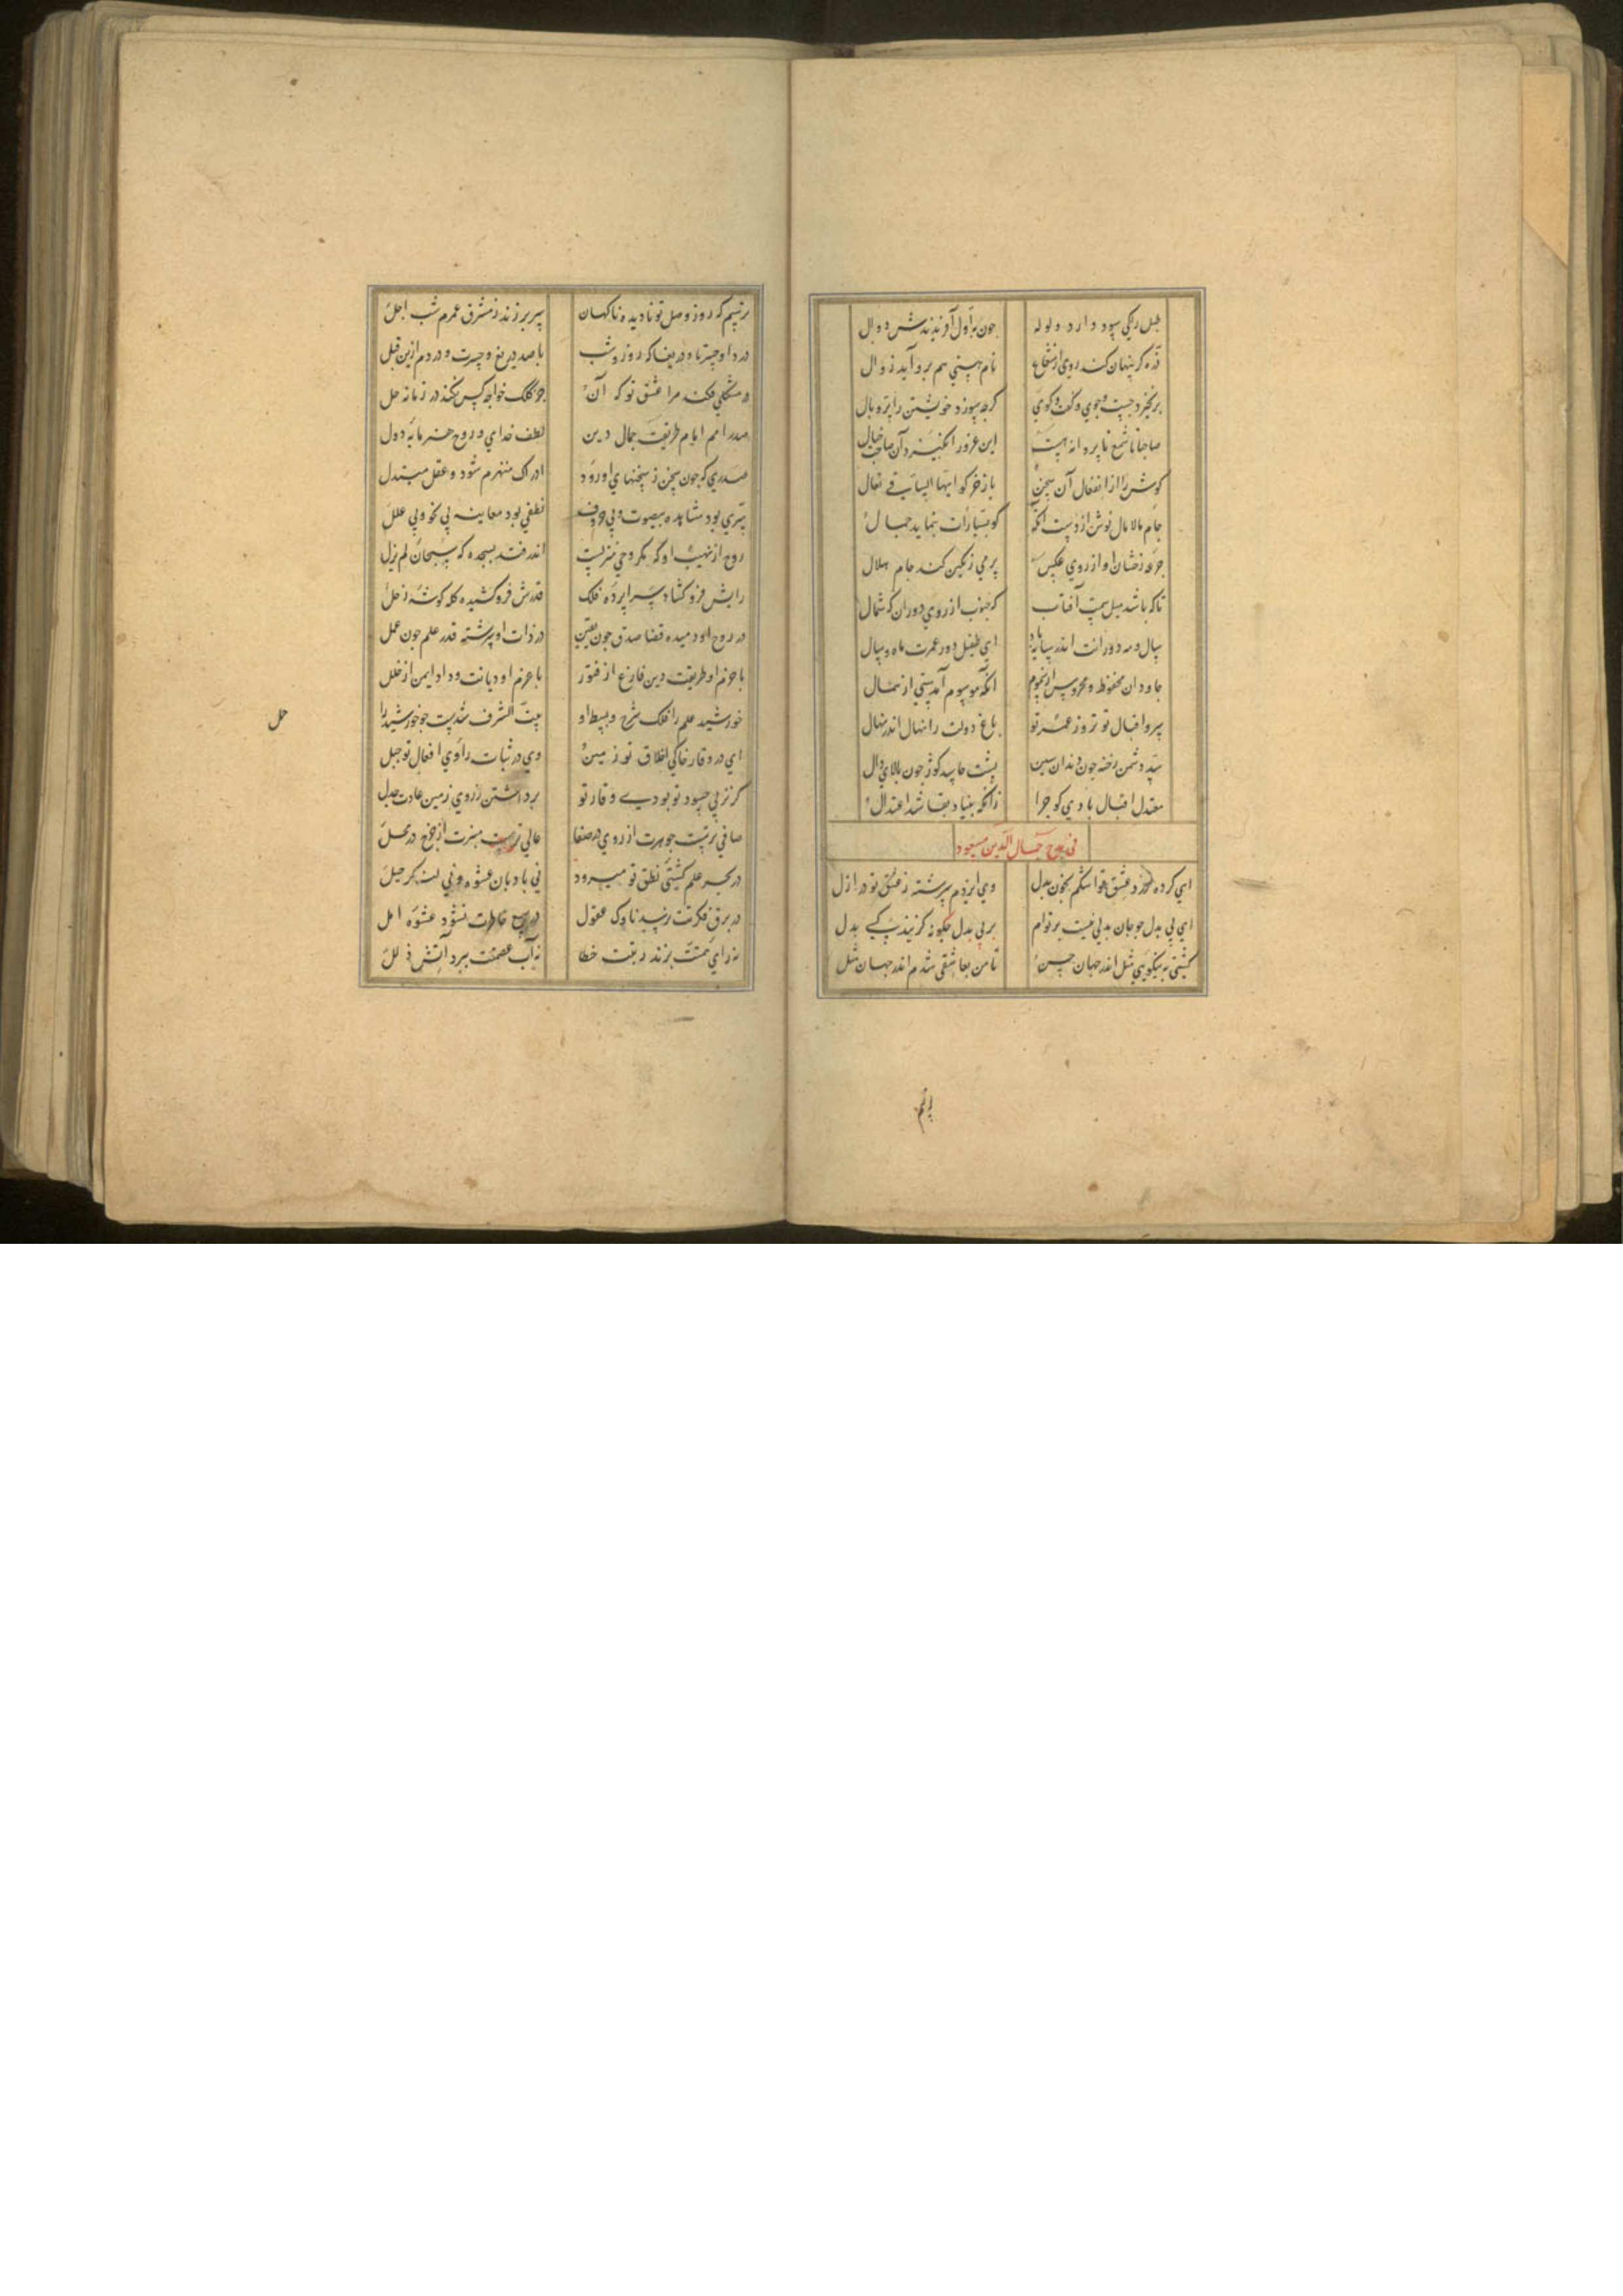 طبل رنکی سود دارد ولوله جون بر اول آوزندش دوال
ذره کر پنهان کند روی از شعاع نام هستی هم برو آید زوال
برنخیزد جست وجوی وکفت وکوی کرجه سوزد خویشتن را پر و بال
صاحبا تا شمع تا پروانه هست این غرور انکیزد آن صاحب خیال
کوش را از انفعال آن سخن باز خر کو ایها الساقی تعال
جام مالامال نوش از دست انکه کو بسیارات بنماید جمال
جرعه زخشان او از روی عکس پر می رنکین کند جام هلال
تا که باشد میل سمت آفتاب که جنوب از روی دوران که شمال
سال ومه دورانت اندر سایه باد ای طفیل دور عمرت ماه وسال
جاودان محفوظ ومحروس از نجوم انکه موسوم آمدستی از شمال
سرو اقبال تو ز روز عمر تو باغ دولت را نهال اندر نهال
سد دشمن رخنه جون دندان سین پشت حاسد کوژ جون بالای دال
معتدل اقبال بادی کو جرا زانکه بنیاد بقا شد اعتدال
فی مدح جمال الدین مسعود
ای کرده درد عشق تو اشکم بخون بدل وی ایزدم سرشته ز عشق تو در ازل
ای بی بدل جو جان بدلی نیست بر توام بر بی بدل جکونه کزیند کسی بدل
کشتی به نیکویی مثل اندر جهان حسن تا من بعاشقی شدم اندر جهان مثل
ترسم که روز وصل تو نادیده ناکهان سر بر زند ز مشرق عمرم شب اجل
دردا وحسرتا ودریغا که روز وشب با صد دریغ وحسرت ودردم ازین قبل
در مشکلی فکند مرا عشق تو که آن جز کلک خواجه کس نکند در زمانه حل
صدر امم ایام طریقت جمال دین لطف خدای وروح هنر مایه دول
صدری که جون سخن ز سخنهای او رود ادراک منهزم شود وعقل مبتذل
سری بود مشاهده بیصوت وبی حروف نطقی بود معاینه بی نحو وبی علل
روح از نهیب او که مکر وحی منزلست اندر فتد بسجده که سبحان لم یزل
رایش فرو کشاد سراپرده فلک قدرش فرو کشیده کله کوشه زحل
در روح او دمیده قضا صدق جون یقین در ذات او سرشته قدر علم جون عمل
با عزم او طریقت دین فارغ از فتور با حزم او دیانت وداد ایمن از خلل
خورشید علم را فلک شرح وبسط او بیت الشرف شدست جو خورشید را
حمل
ای در وقار خاکی اخلاق تو زمین وی در ثبات راوی افعال تو جبل
کر نز پی حسود تو بودی وقار تو برداشتن ز روی زمین عادت جدل
صافی ترست جوهرت از روح در صفا عالی ترست منبرت از جرخ در محل
در بحر علم کشتی نطق تو میرود نی بادبان عشوه ونی لنکر حیل
در برق فکرتت رسد ناوک عقول در سمع خاطرت نشود عشوه امل
نه رای همتت بزند زینت خطا نه آب عصمتت ببرد آتش زلل